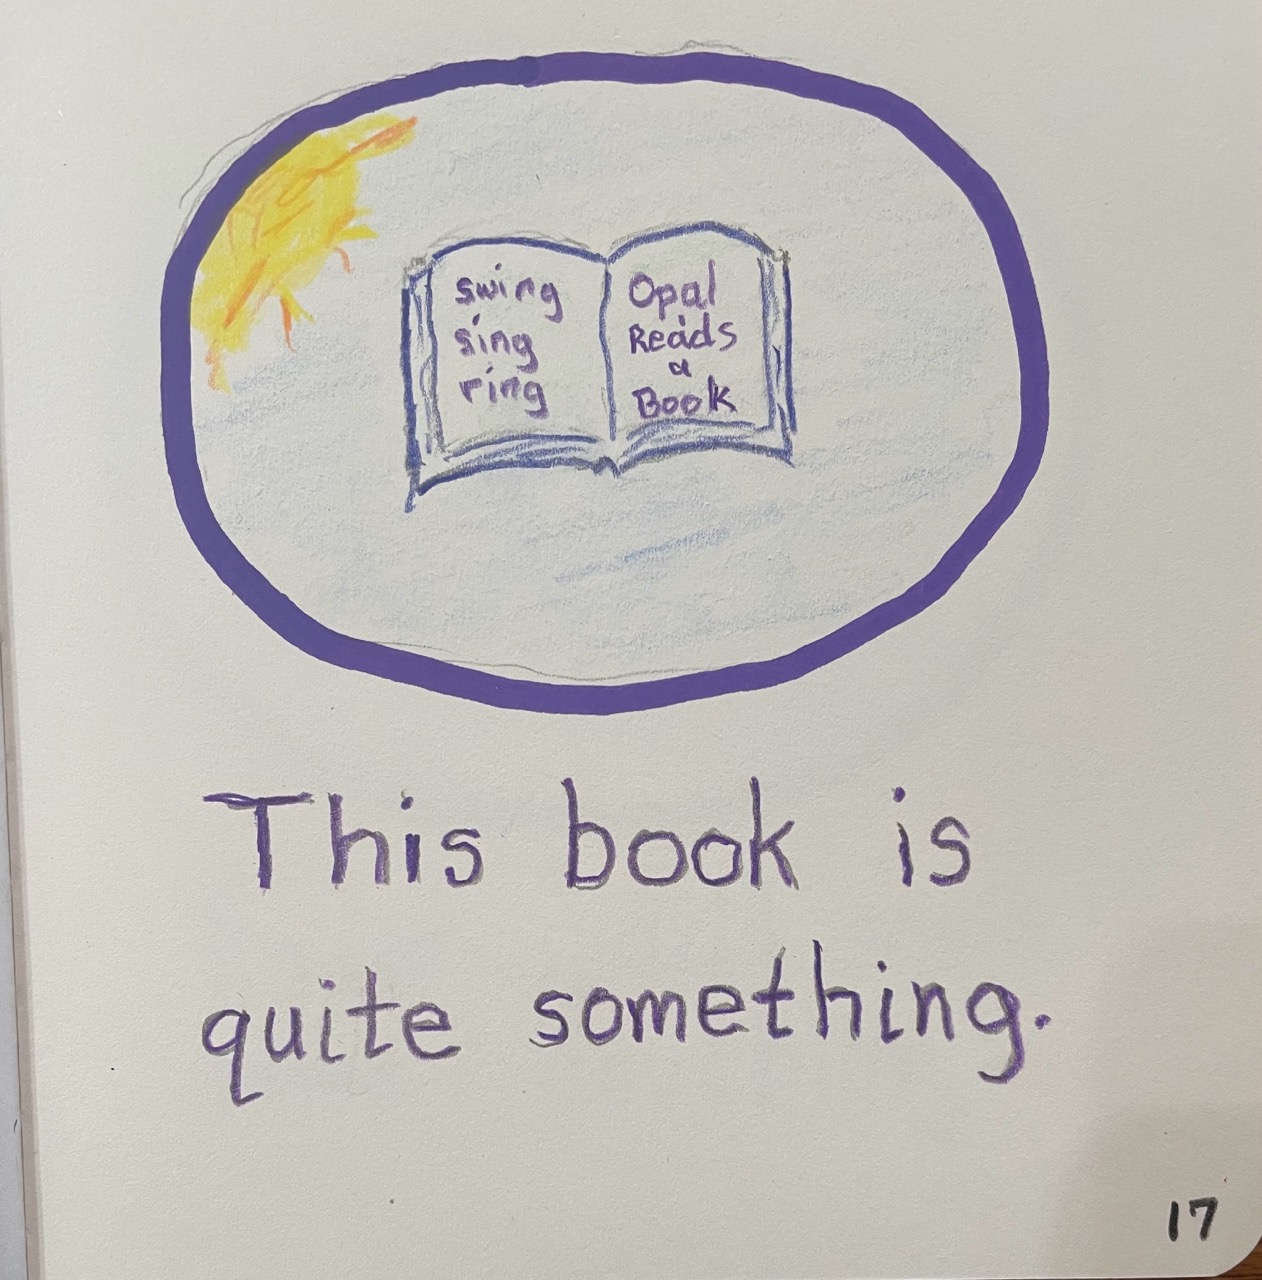 swing
sing
ring
Opal
Reads
a
Book
This book is
quite something.
17